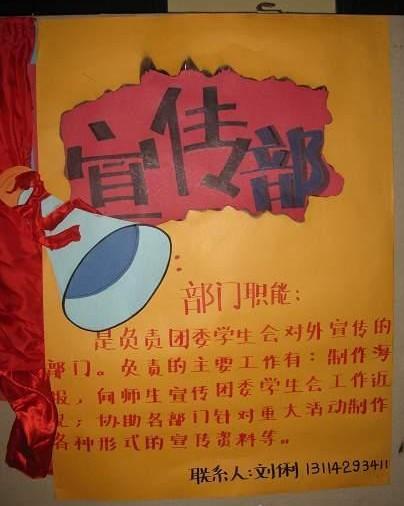 宣传部
部门职能：
是负责团委学生会对外宣传的
部门。负责的主要工作有：制作海
报，向师生宣传团委学生会工作近
况；协助各部门针对重大活动制作
各种形式的宣传资料等。
联系人：刘俐 13114293411